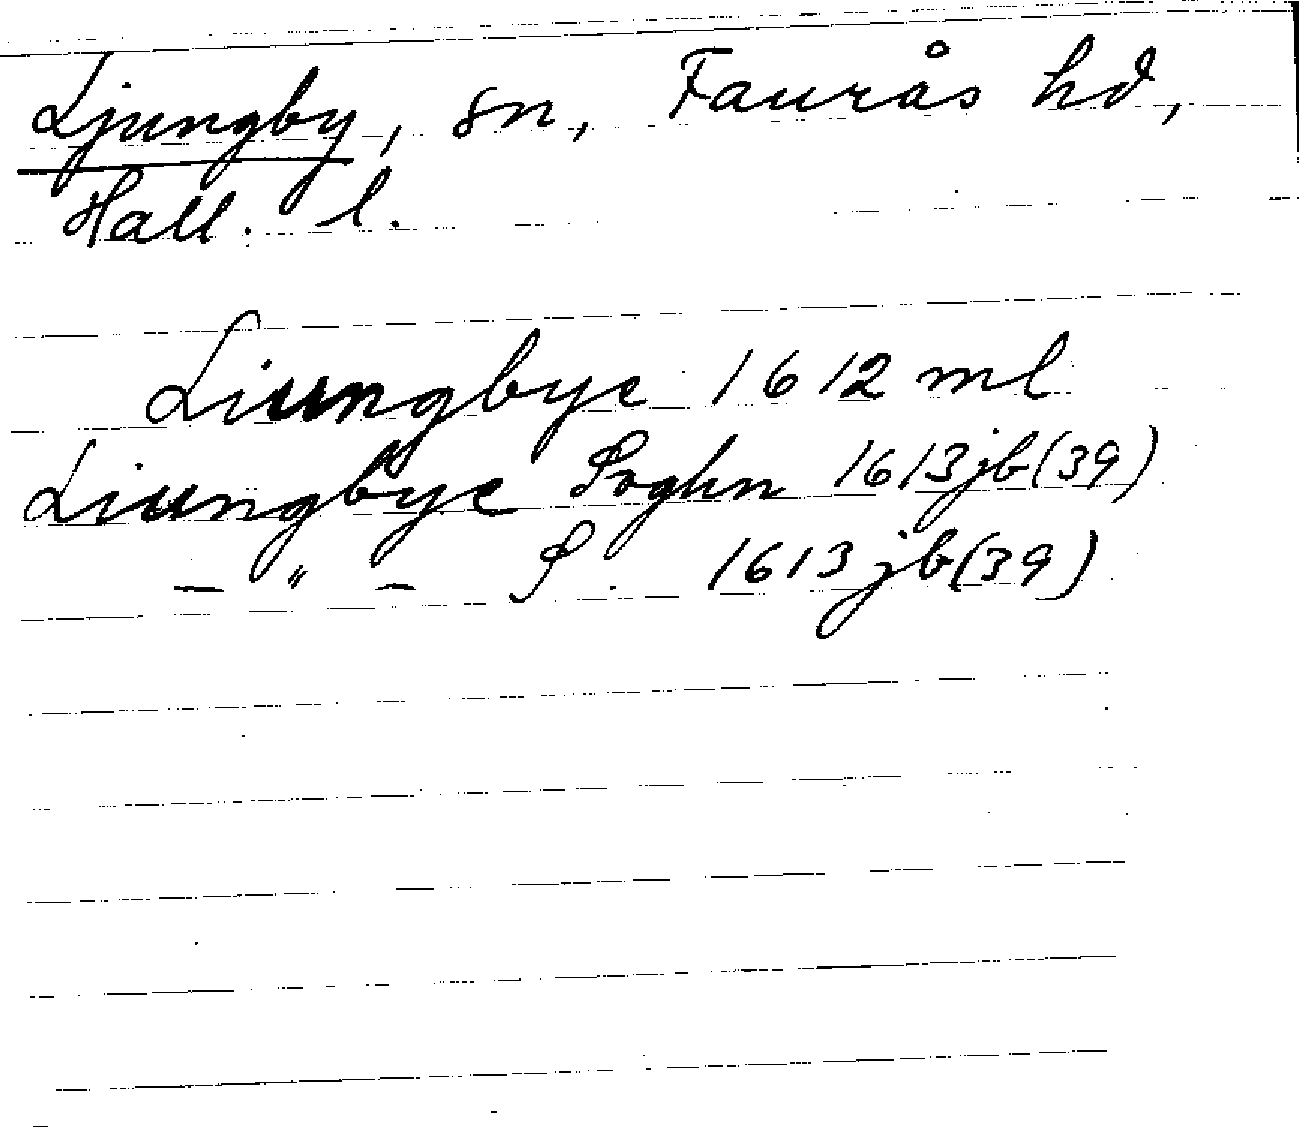 Ljungby, sn, Faurås hd,
Hall. l.
Liungbye 1612 ml
Liungbye Soghn 1613 jb (39)
– " – S. 1613 jb (39)